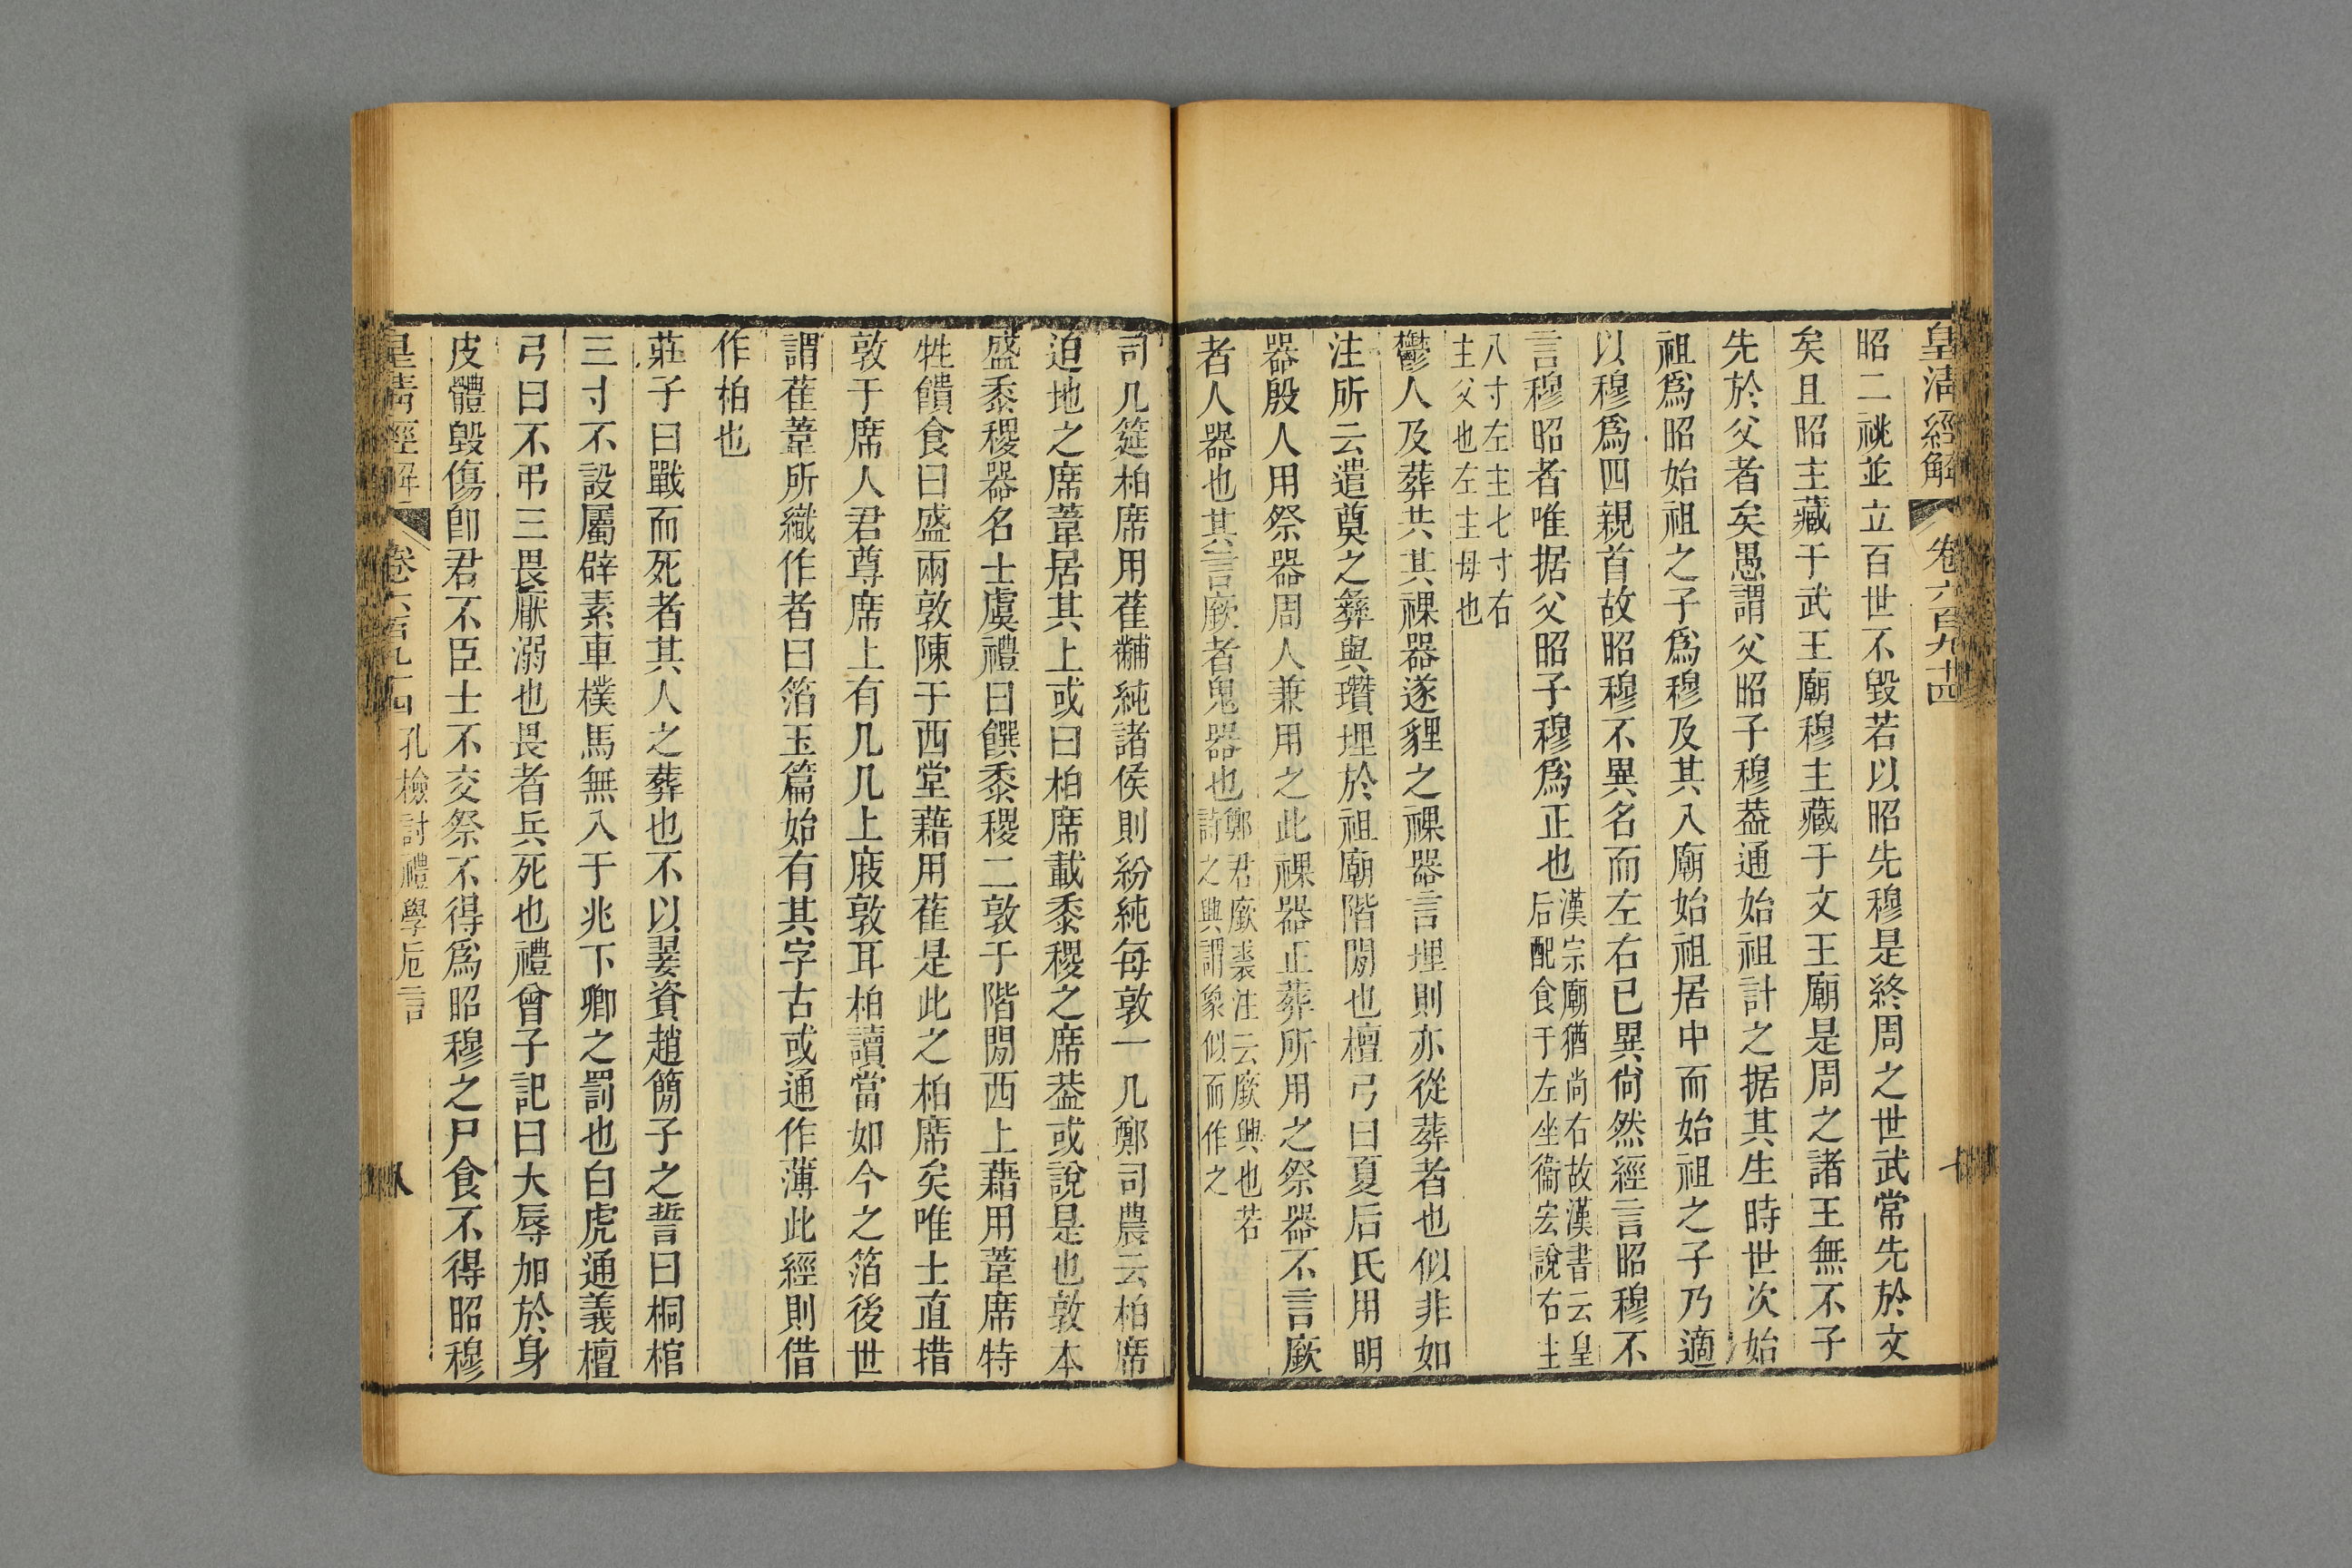 皇清經解 卷六百九十四
昭二祧並立百世不毀若以昭先穆是終周之世武常先於文
矣且昭主藏于武王廟穆主藏于文王廟是周之諸王無不子
先於父者矣愚謂父昭子穆葢通始祖計之据其生時世次始
祖爲昭始祖之子爲穆及其入廟始祖居中而始祖之子乃適
以穆爲四親首故昭穆不異名而左右已異尙然經言昭穆不
言穆昭者唯据父昭子穆爲正也
漢宗廟猶尚右故漢書云皇
后配食于左坐衞宏說右主
八寸左主七寸右
主父也左主母也
鬱人及葬共其祼器遂貍之祼器言埋則亦從葬者也似非如
注所云遣奠之彝與瓚埋於祖廟階閒也檀弓曰夏后氏用明
器殷人用祭器周人兼用之此祼器正葬所用之祭器不言廞
者人器也其言廞者鬼器也
鄭君廞裘注云廞興也若
詩之興謂象似而作之
司几筵柏席用萑黼純諸侯則紛純每敦一几鄭司農云柏席
迫地之席葦居其上或曰柏席載黍稷之席葢或說是也敦本
盛黍稷器名士虞禮曰饌黍稷二敦于階閒西上藉用葦席特
牲饋食曰盛兩敦陳于西堂藉用萑是此之柏席矣唯士直措
敦于席人君尊席上有几几上庪敦耳柏讀當如今之箔後世
謂萑葦所織作者曰箔玉篇始有其字古或通作薄此經則借
作柏也
莊子曰戰而死者其人之葬也不以翣資趙簡子之誓曰桐棺
三寸不設屬辟素車樸馬無入于兆下卿之罰也白虎通義檀
弓曰不弔三畏厭溺也畏者兵死也禮曾子記曰大辱加於身
皮體毀傷卽君不臣士不交祭不得爲昭穆之尸食不得昭穆
皇清經解 卷六百九十四 孔檢討禮學卮言